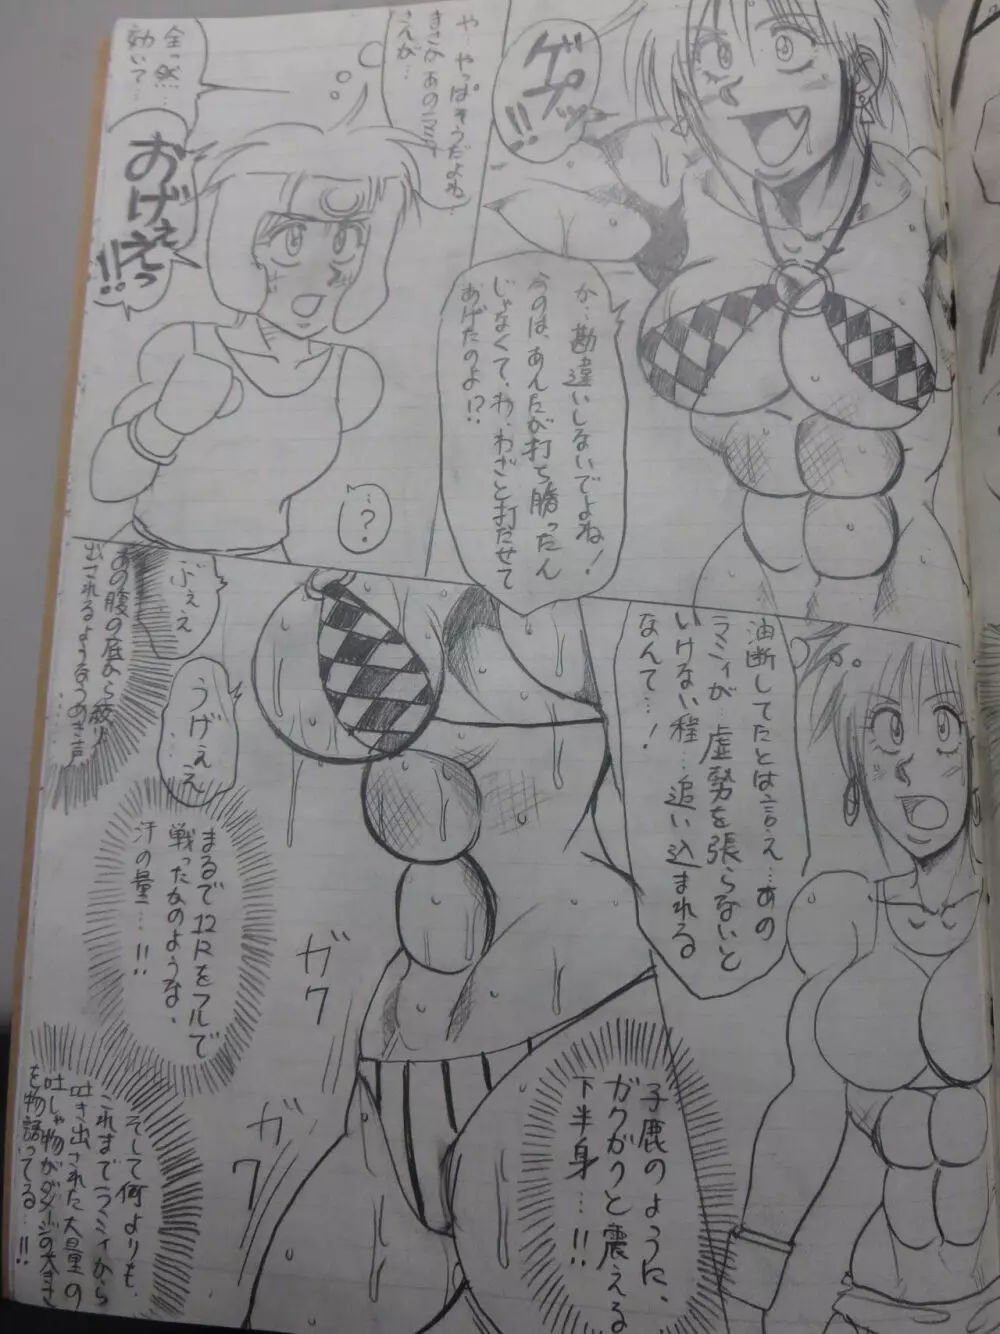 ゲプッ!!
か…勘違いしないでよね!
今のは、あんたが打ち勝ったん
じゃなくて、わ、わざと打たせて
あげたのよ!?
や…やっぱそうだよね…
まさかあのラミィ
さんが…
全っ然…
効いて…
おげぇえっ
!!
…?
油断してたとは言え…あの
ラミィが…虚勢を張らないと
いけない程…追い込まれる
なんて…!
ぶぇぇ
うげぇえ
…
あの腹の底から絞り
出されるようなうめき声
…
まるで12Rをフルで
戦ったかのような、
汗の量…!!
ガク
ガク
子鹿のように、
ガクガクと震える
下半身…!!
そして何よりも、
これまでラミィから
吐き出された大量の
吐しゃ物がダメージの大きさ
を物語ってる…!!